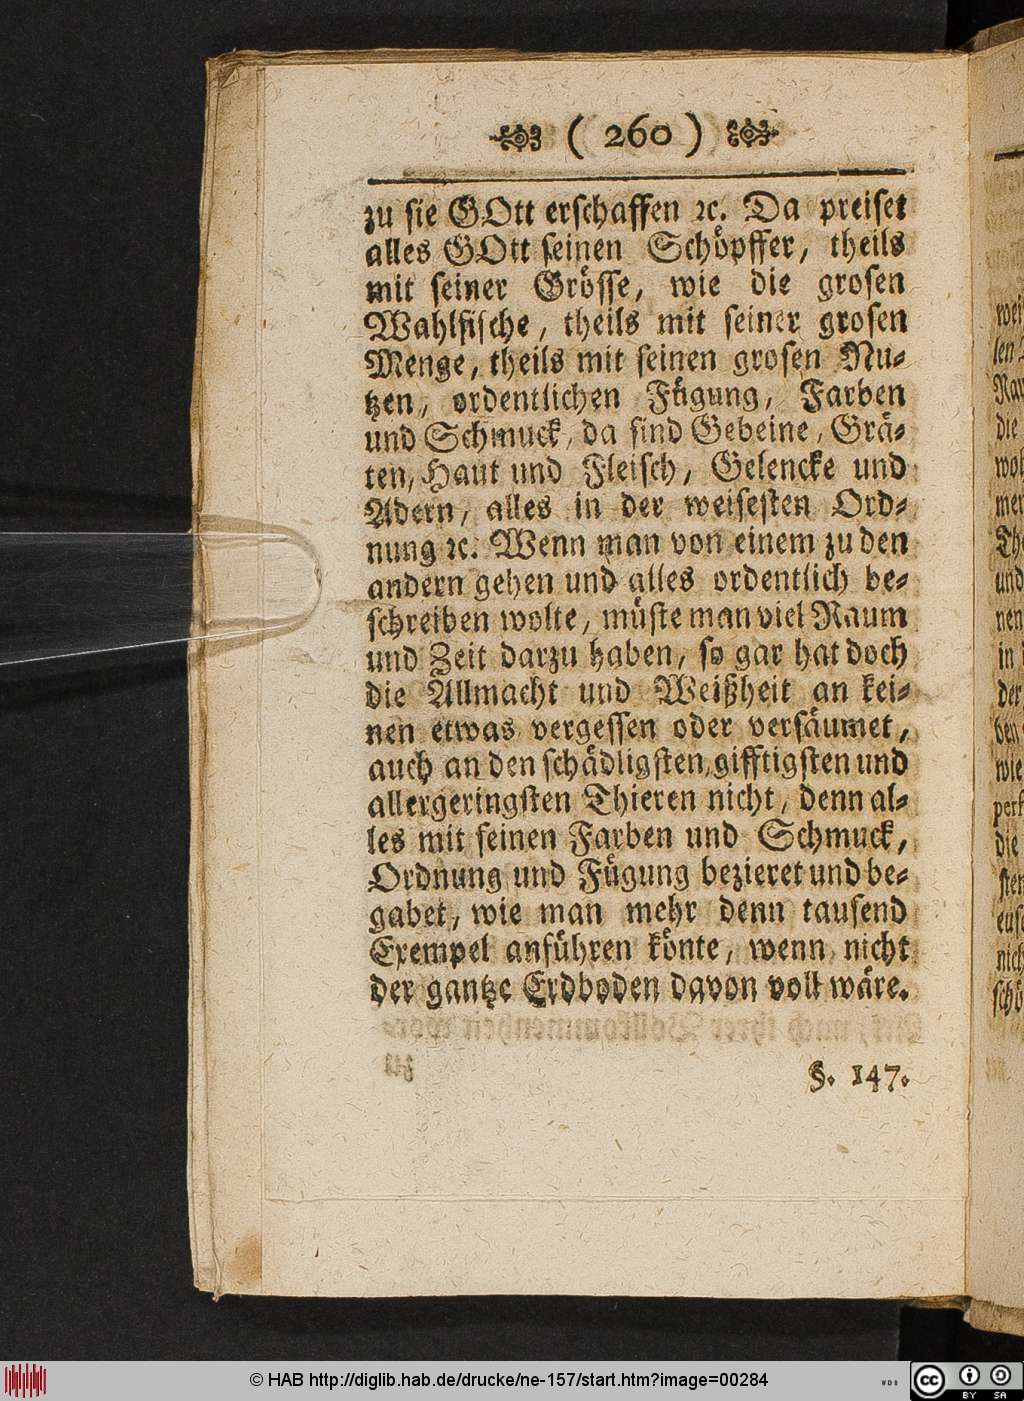 ( 260 )
zu sie GOtt erschaffen ꝛc. Da preiset
alles GOtt seinen Schöpffer, theils
mit seiner Grösse, wie die grosen
Wahlfische, theils mit seiner grosen
Menge, theils mit seinen grosen Nu-
tzen, ordentlichen Fügung, Farben
und Schmuck, da sind Gebeine, Grä-
ten, Haut und Fleisch, Gelencke und
Adern, alles in der weisesten Ord-
nung ꝛc. Wenn man von einem zu den
andern gehen und alles ordentlich be-
schreiben wolte, müste man viel Raum
und Zeit darzu haben, so gar hat doch
die Allmacht und Weißheit an kei-
nen etwas vergessen oder versäumet,
auch an den schädligsten, gifftigsten und
allergeringsten Thieren nicht, denn al-
les mit seinen Farben und Schmuck,
Ordnung und Fügung bezieret und be-
gabet, wie man mehr denn tausend
Exempel anführen könte, wenn nicht
der gantze Erdboden davon voll wäre.
§. 147.
© HAB http://diglib.hab.de/drucke/ne-157/start.htm?image=00284
WDB
cc BY SA